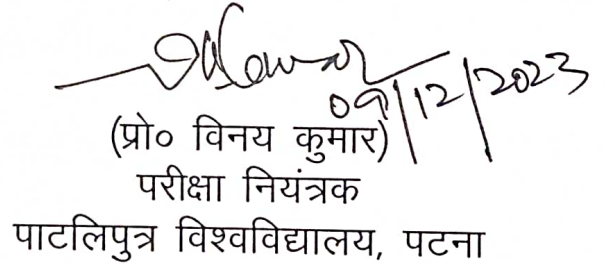 09/12/2023
(प्रो० विनय कुमार)
परीक्षा नियंत्रक
पाटलिपुत्र विश्वविद्यालय, पटना